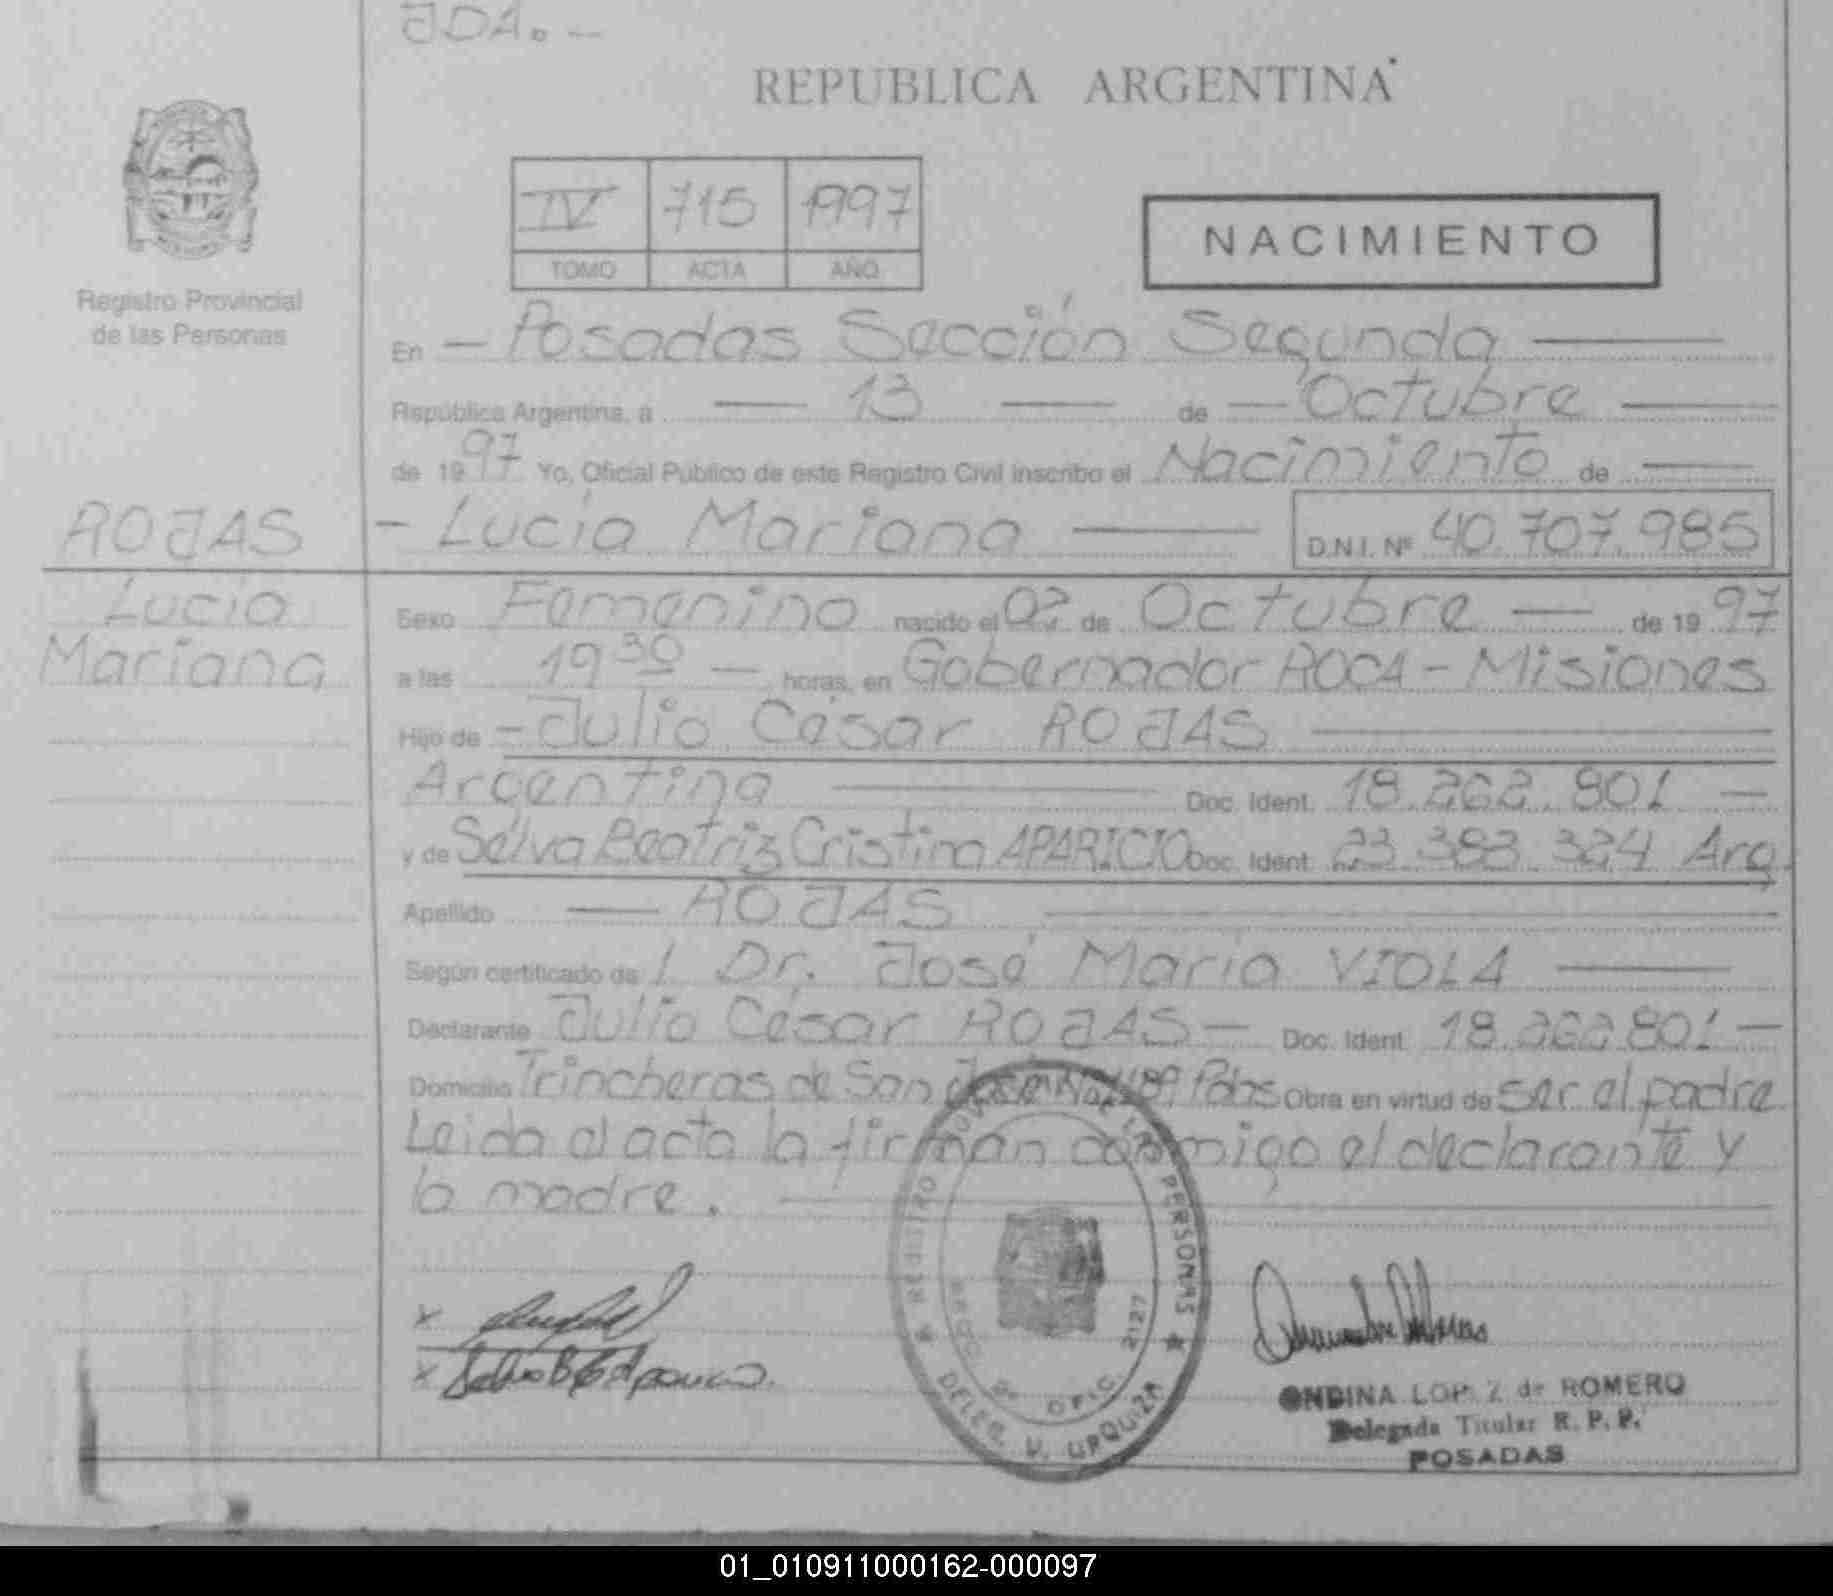 JDA. —
REPUBLICA ARGENTINA
IV 715 1997
TOMO ACTA AÑO
NACIMIENTO
Registro Provincial
de las Personas
En — Posadas Sección Segunda —
República Argentina, a — 13 — de — Octubre —
de 1997 Yo, Oficial Público de este Registro Civil inscribo el Nacimiento de —
ROJAS — Lucía Mariana — D.N.I. Nº 40.707.985
Lucía
Mariana
Sexo Femenino nacido el 02 de Octubre — de 1997
a las 19 30 — horas, en Gobernador ROCA - Misiones
Hijo de — Julio César ROJAS —
Argentina — Doc. Ident. 18.262.801 —
y de Selva Beatriz Cristina APARICIO Doc. Ident. 23.383.324 Arg.
Apellido — ROJAS —
Según certificado de / Dr. José María VIOLA —
Declarante Julio César ROJAS — Doc. Ident. 18.262.801 —
Domicilio Trincheras de San José Pdas Obra en virtud de ser el padre
Leida el acta la firman conmigo el declarante y
la madre. —
REGISTRO PERSONAS
DELEG. V. URQUIZA
OFIC. 2127
ONDINA LOPEZ de ROMERO
Delegada Titular R. P. P.
POSADAS
01_010911000162-000097